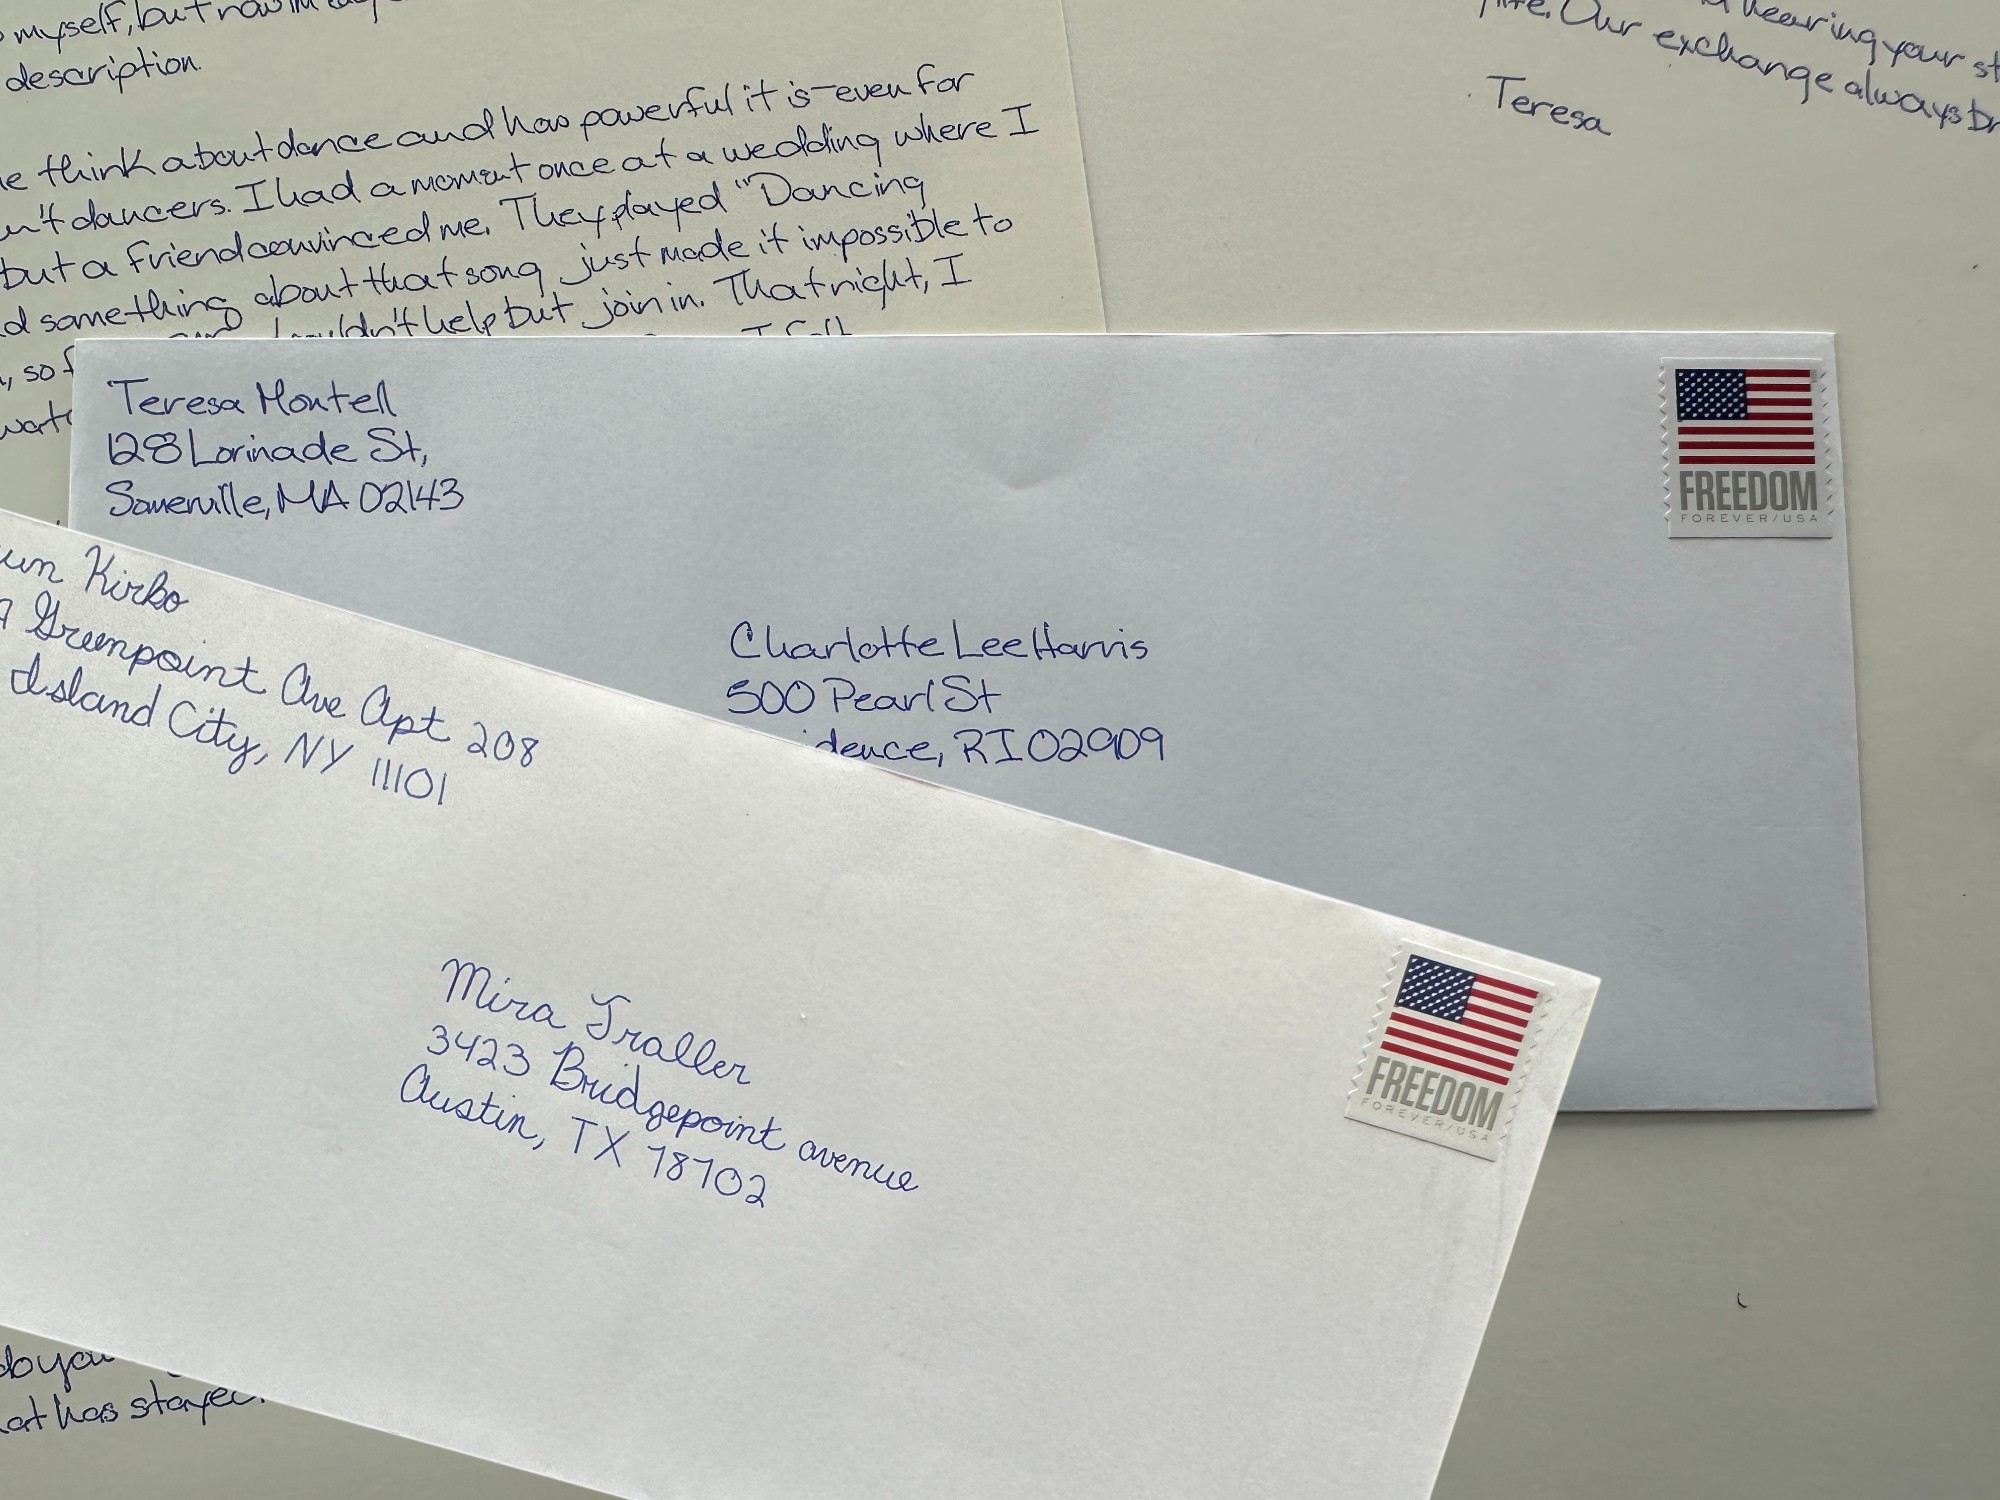 myself, but now
description.
think about dance and how powerful it is-even for
dancers. I had a moment once at a wedding where I
but a friend convinced me. They played "Dancing
something about that song just made it impossible to
help but join in. That night, I
so
hearing your
life. Our exchange always
Teresa
Teresa Montell
128 Lorinade St,
Somerville, MA 02143
FREEDOM
FOREVER/USA
Charlotte Lee Harris
500 Pearl St
dence, RI 02909
Kirko
Greenpoint Ave Apt 208
Island City, NY 11101
Mira Traller
3423 Bridgepoint avenue
Austin, TX 78702
FREEDOM
FOREVER/USA
do you
has stayed